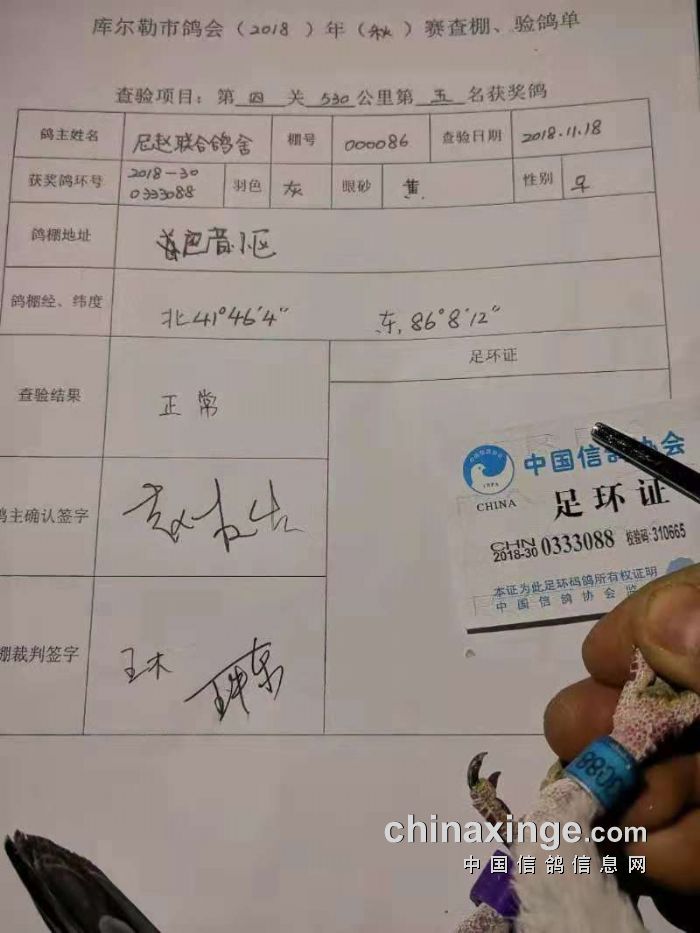 库尔勒市鸽会（2018 ）年（秋）赛查棚、验鸽单
查验项目：第 四 关 530 公里第 五 名获奖鸽
鸽主姓名 尼赵联合鸽舍 棚号 000086 查验日期 2018.11.18
获奖鸽环号 2018-30 0333088 羽色 灰 眼砂 黄 性别 ♀
鸽棚地址 小区
鸽棚经、纬度 北41°46′4″ 东，86°8′12″
查验结果 正常
足环证
鸽主确认签字
棚裁判签字 王木
中国信鸽协会
CHINA
足环证
CHN
2018-30 0333088 校验码:310665
本证为此足环码鸽所有权证明
中国信鸽协会监
3088
chinaxinge.com
中国信鸽信息网